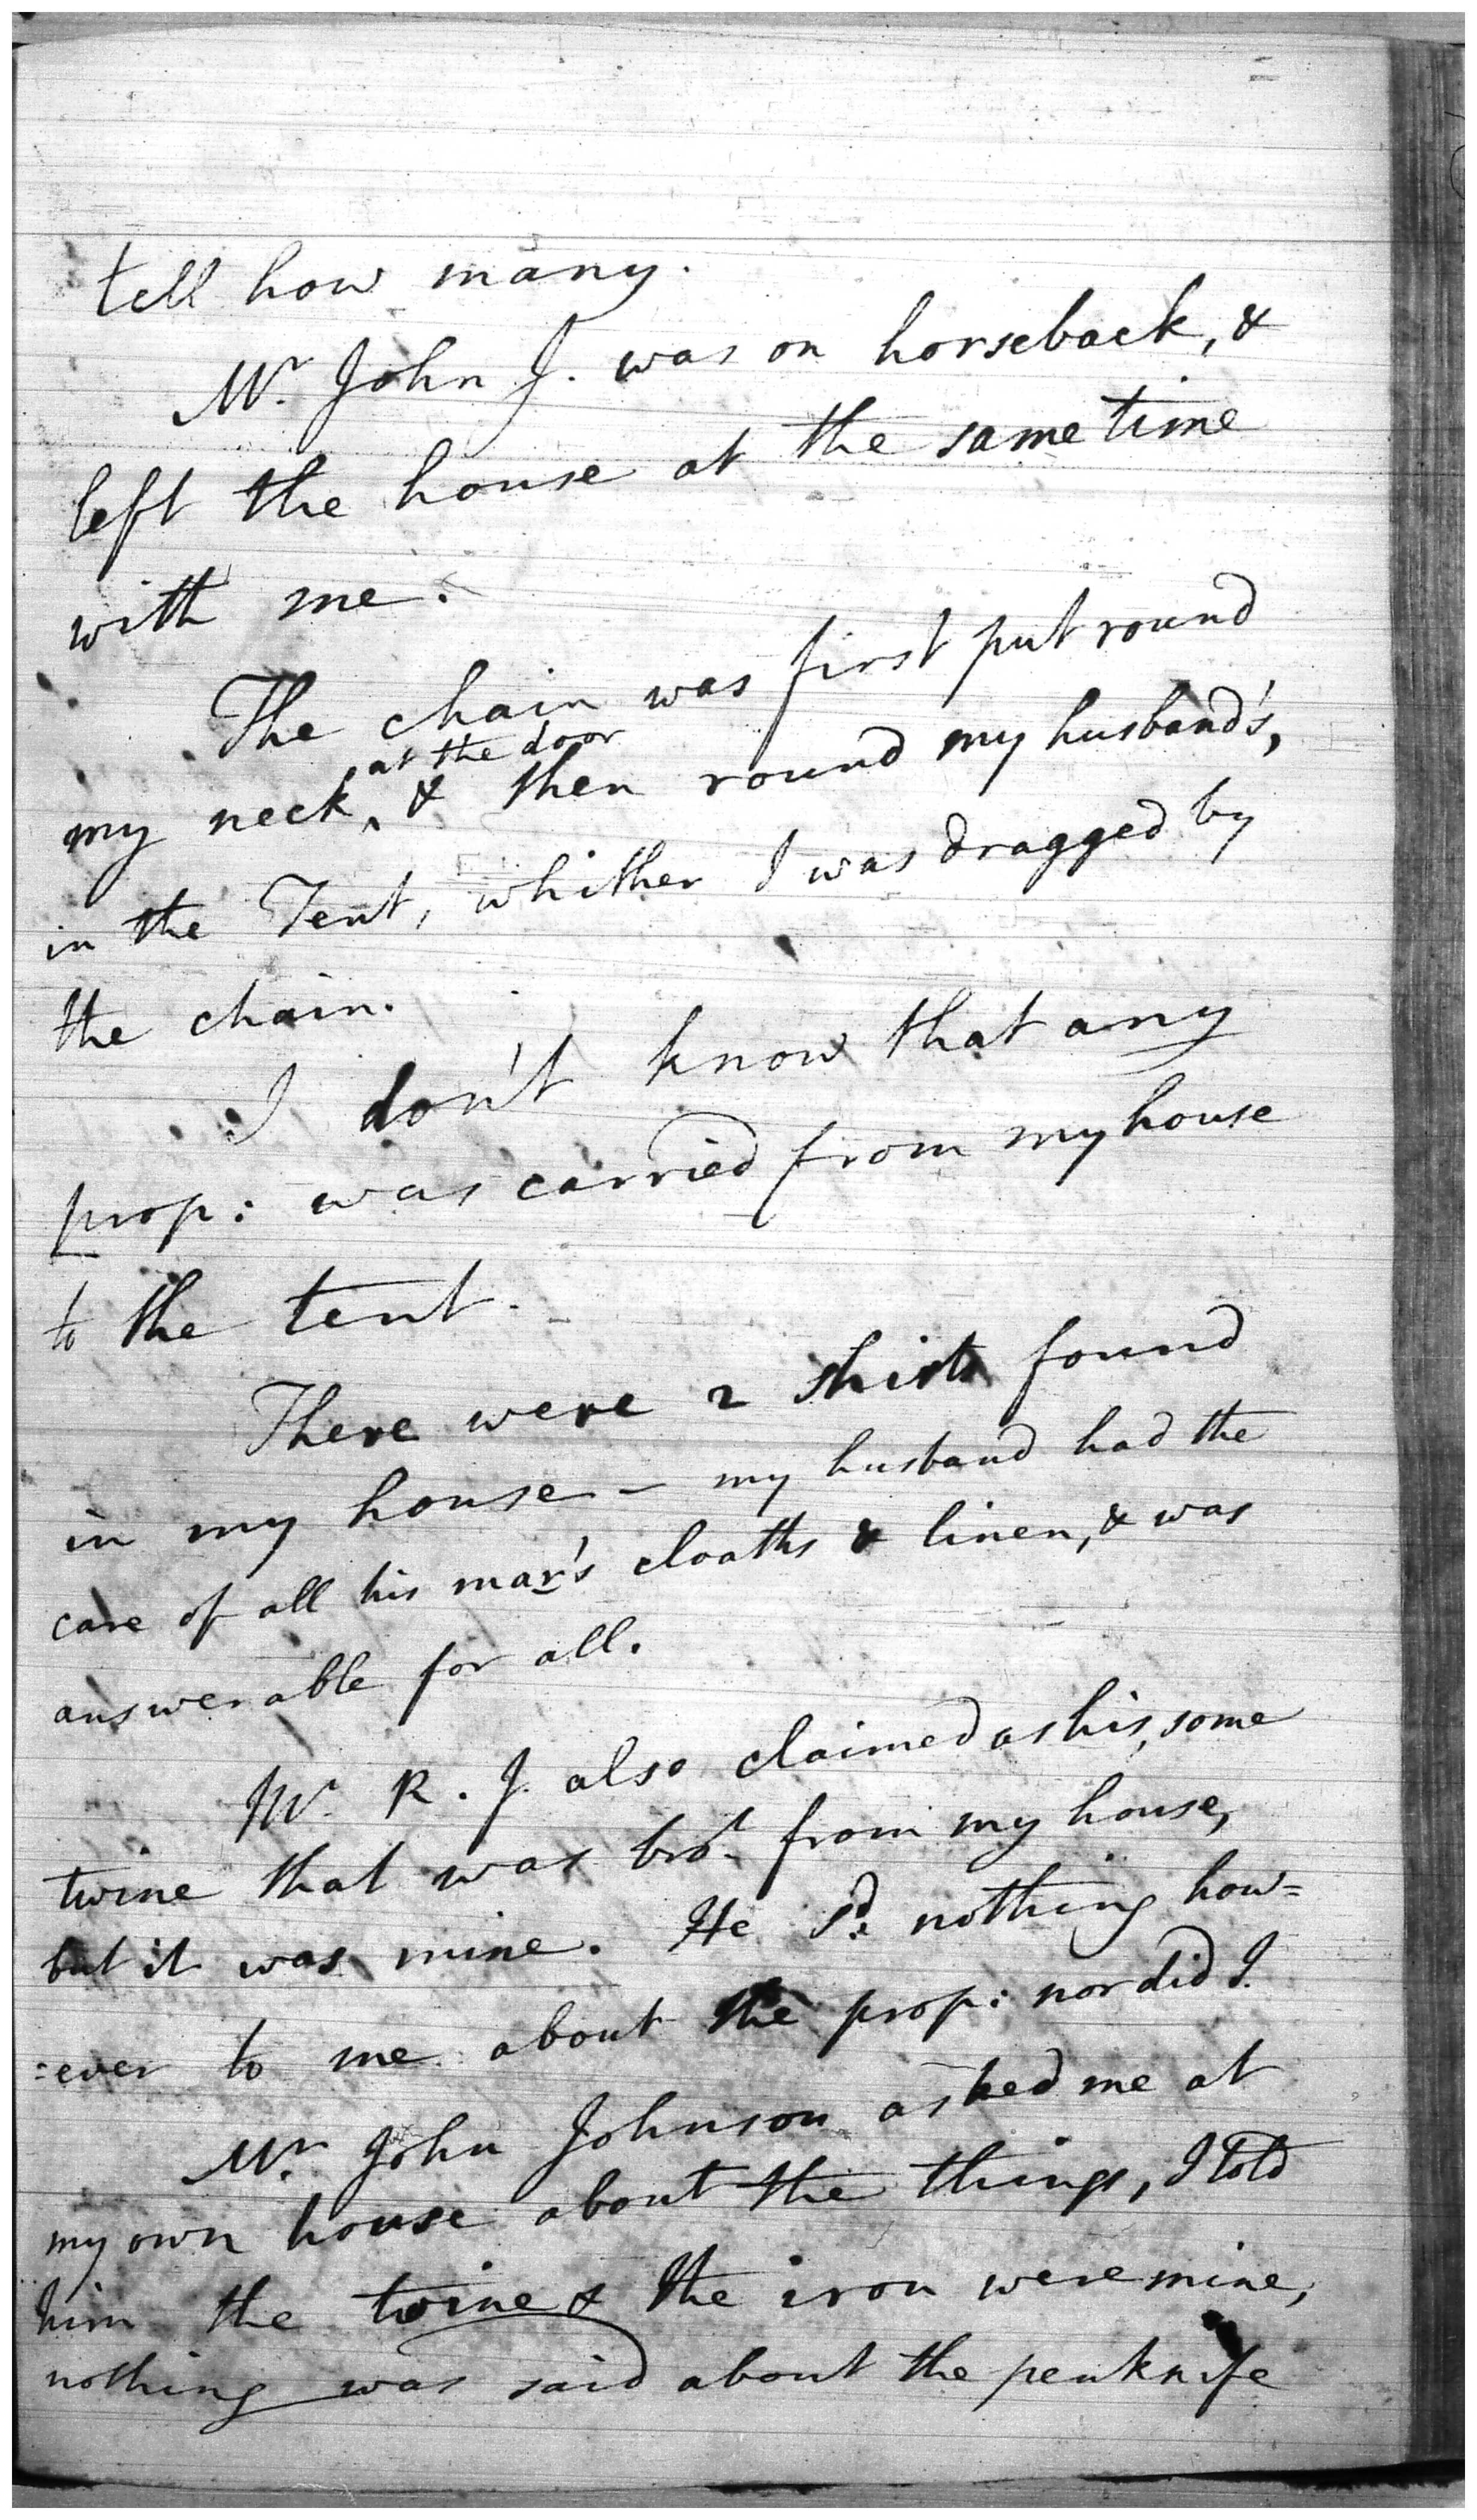 tell how many.
Mr. John J. was on horseback, &
left the house at the same time
with me.
The chain was first put round
at the door
my neck, & then round my husband's,
in the Tent, whither I was dragged by
the chain.
I don't know that any
prop: was carried from my house
to the tent.
There were 2 shirts found
in my house – my husband had the
care of all his mar's cloaths & linen, & was
answerable for all.
Mr. R. J. also claimed as his, some
twine that was bro't from my house,
but it was mine. He sd. nothing how=
=ever to me about the prop: nor did I.
Mr. John Johnson asked me at
my own house about the things, I told
him the twine & the iron were mine,
nothing was said about the penknife